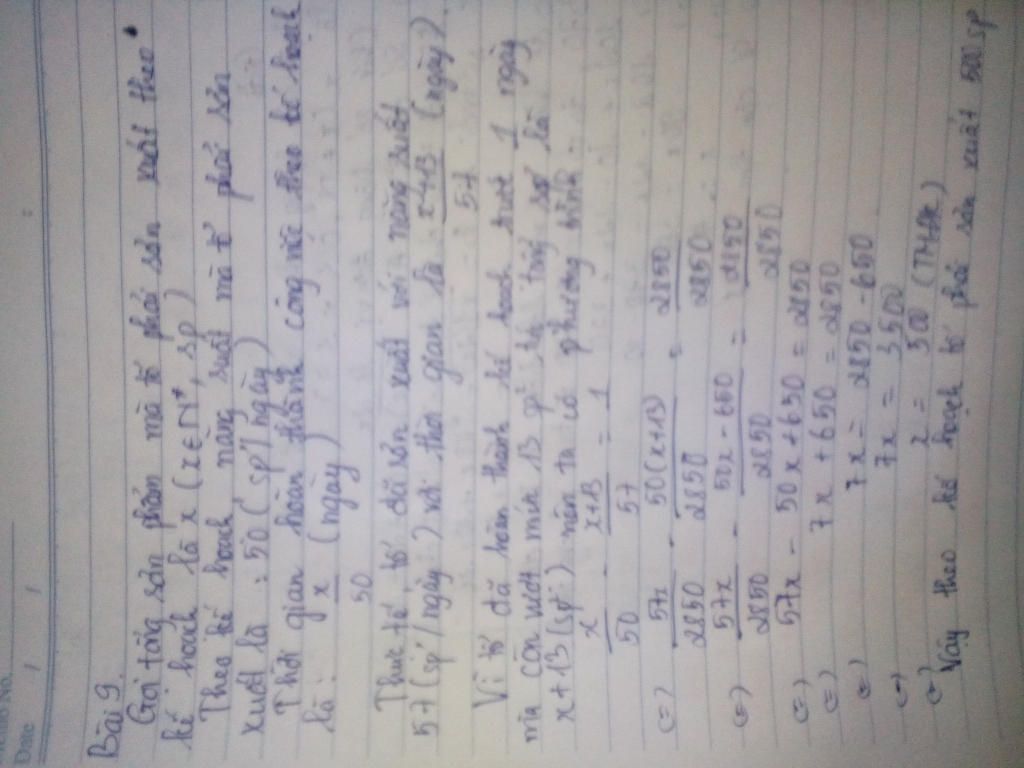 Date / /
Bài 9.
Gọi tổng sản phẩm mà tổ phải sản xuất theo
kế hoạch là x (x ∈ N*, sp)
Theo kế hoạch năng suất mà tổ phải sản
xuất là : 50 (sp / ngày)
Thời gian hoàn thành công việc theo kế hoạch
là : x/50 (ngày)
Thực tế, tổ đã sản xuất với năng suất
57 (sp / ngày) với thời gian là x+13/57 (ngày)
Vì tổ đã hoàn thành kế hoạch trước 1 ngày
mà còn vượt mức 13 sp tổng số là
x+13 (sp) nên ta có phương trình
x/50 - x+13/57 = 1
(=) 57x/2850 - 50(x+13)/2850 = 2850/2850
(=) 57x/2850 - 50x - 650/2850 = 2850/2850
(=) 57x - 50x + 650 = 2850
(=) 7x + 650 = 2850
(=) 7x = 2850 - 650
(=) 7x = 3500
(=) x = 500 (TMĐK)
Vậy theo kế hoạch tổ phải sản xuất 500 sp